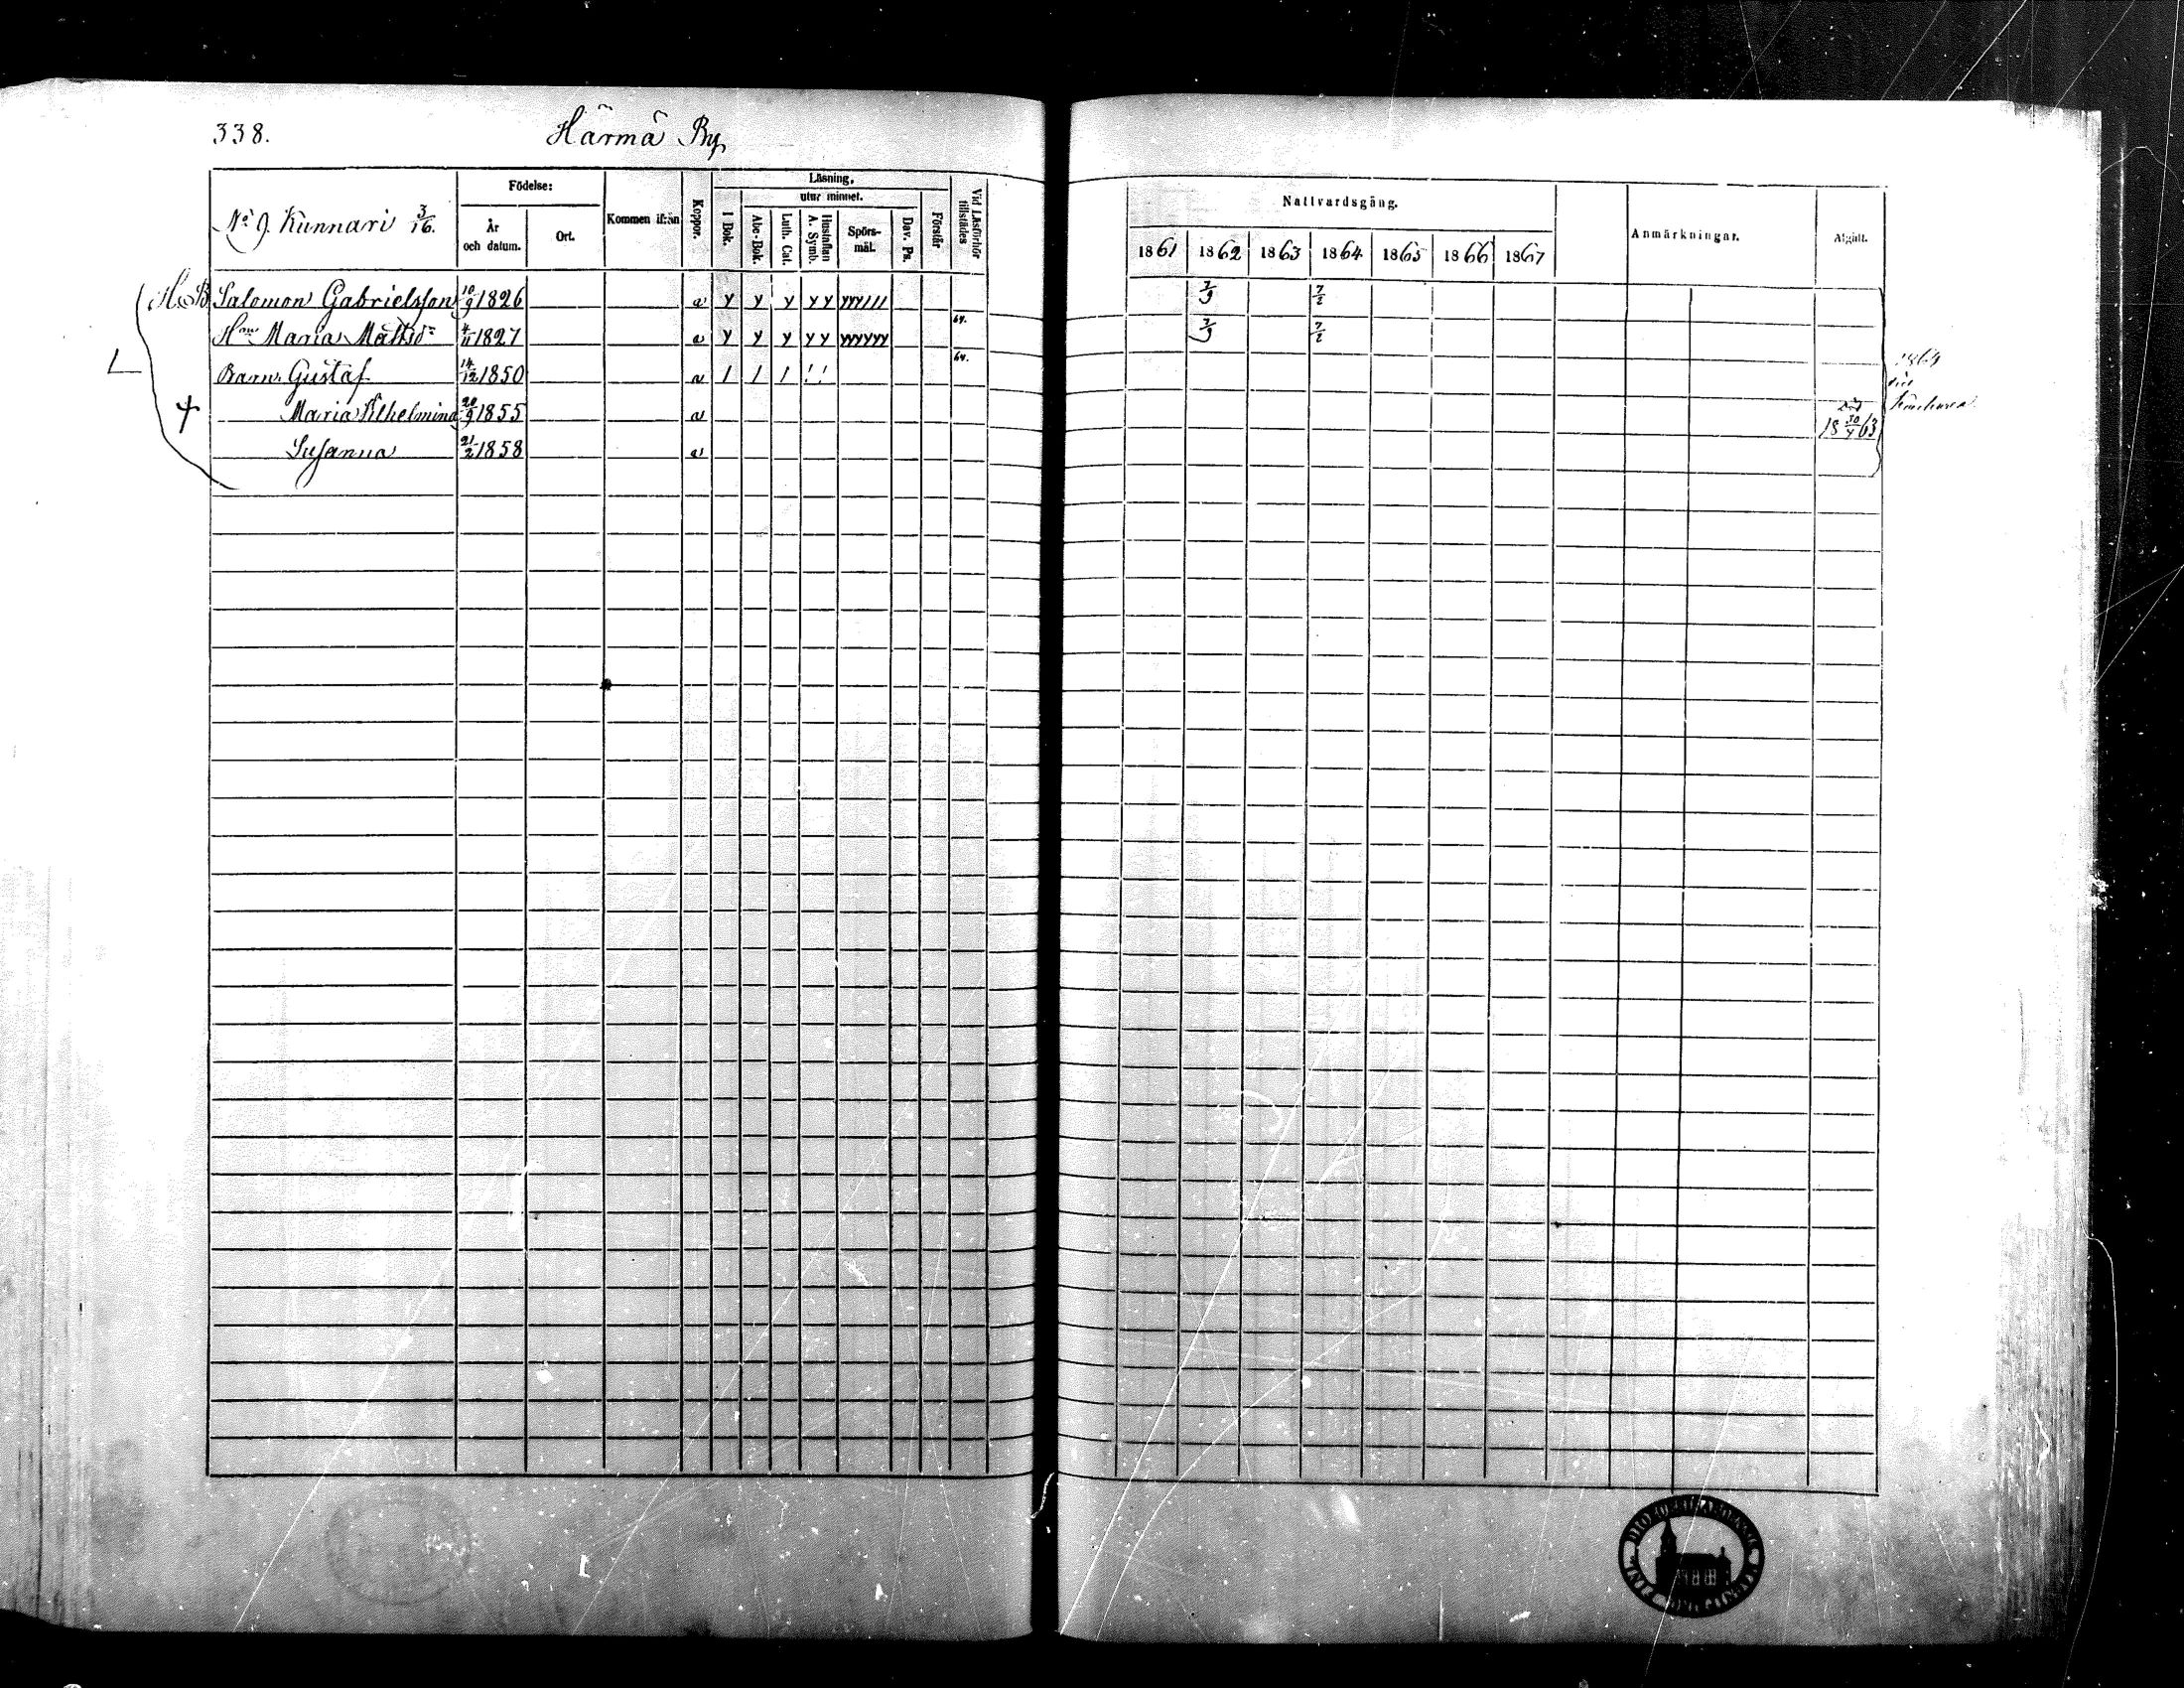 338. Härmä By
Födelse: År och datum. Ort.
Kommen ifrån
Koppor.
Läsning, I Bok. utur minnet. Abc-Bok. Luth. Cat. Hustaflan A. Symb. Spörsmål. Dav. Ps. Förstår
Vid Läsförhör tillstädes
Nattvardsgång. 1861 1862 1863 1864 1865 1866 1867
Anmärkningar. Afgått.
No 9. Kunnari 3/16.
Salomon Gabrielsson 10/9 1826 a y y y y y yyy/// 64. 7/9 7/2
Hnu Maria Mattsd= 4/11 1827 a y y y y y yyyyyy 64. 7/9 7/2
Barn. Gustaf 14/12 1850 a / / / ! !
Maria Wilhelmina 20/9 1855 a död 18 30/4 63
Susanna 21/2 1858 a
1864
till